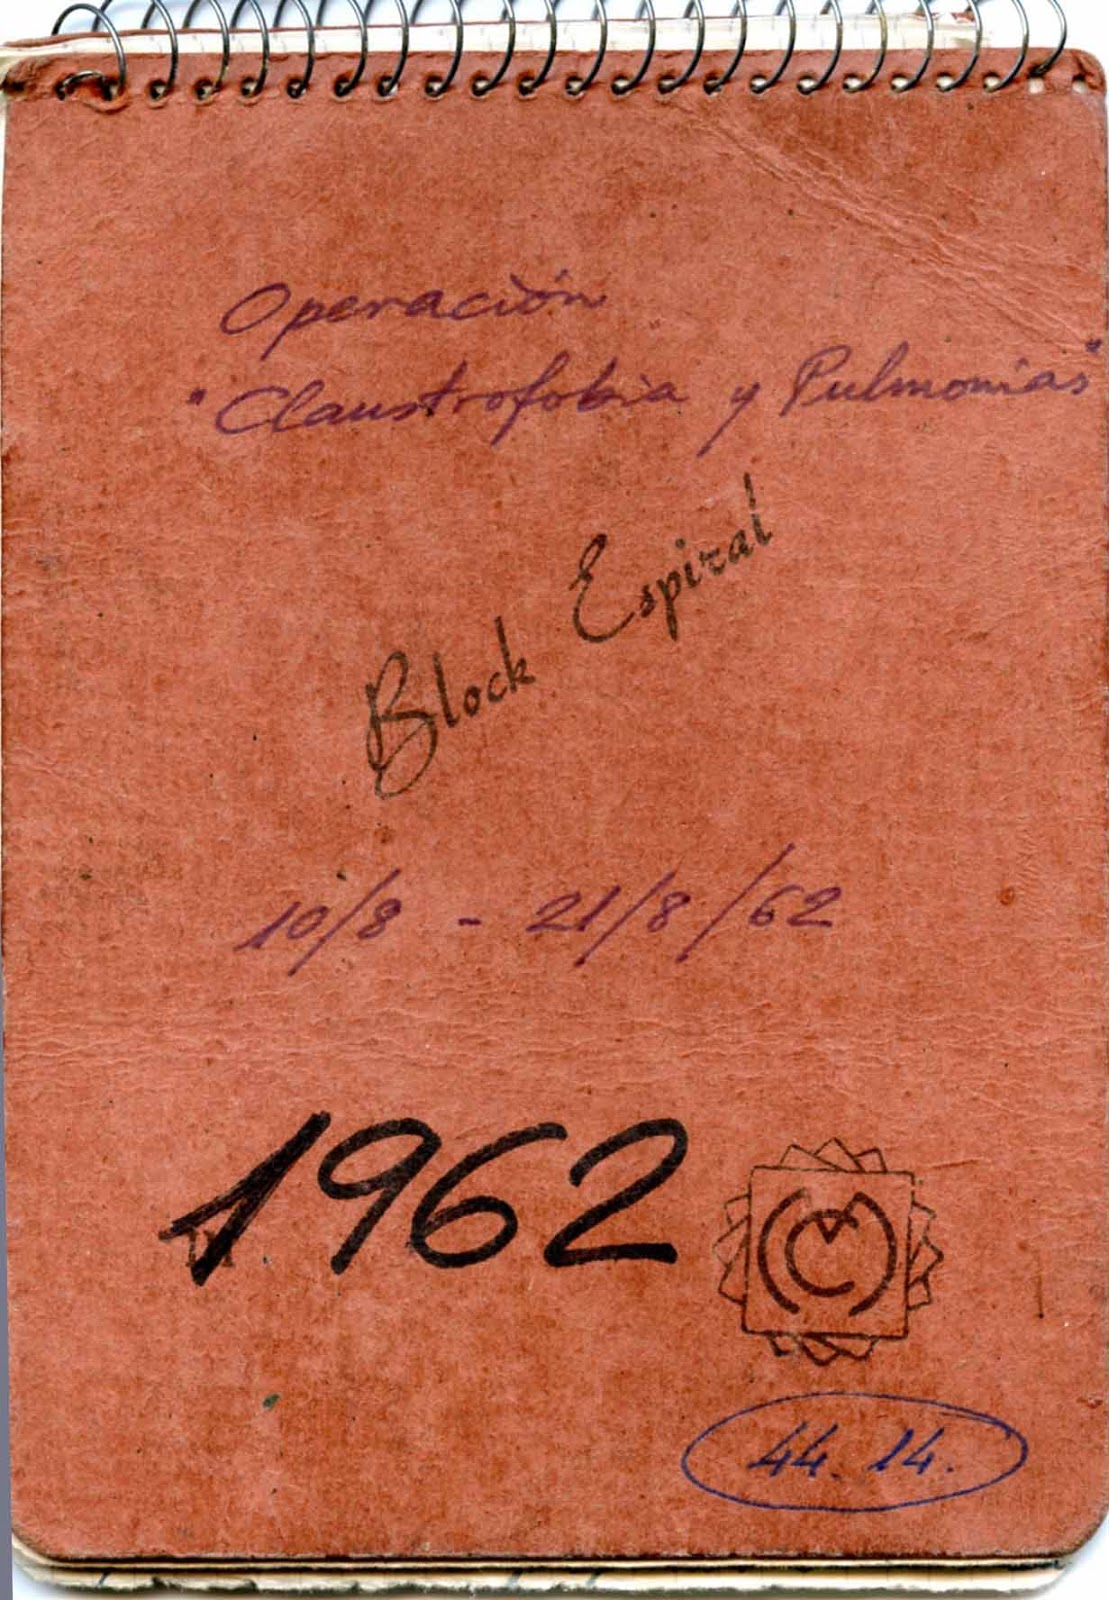 Operación
"Claustrofobia y Pulmonias"
Block Espiral
10/8 - 21/8/62
1962
CM
44.14.